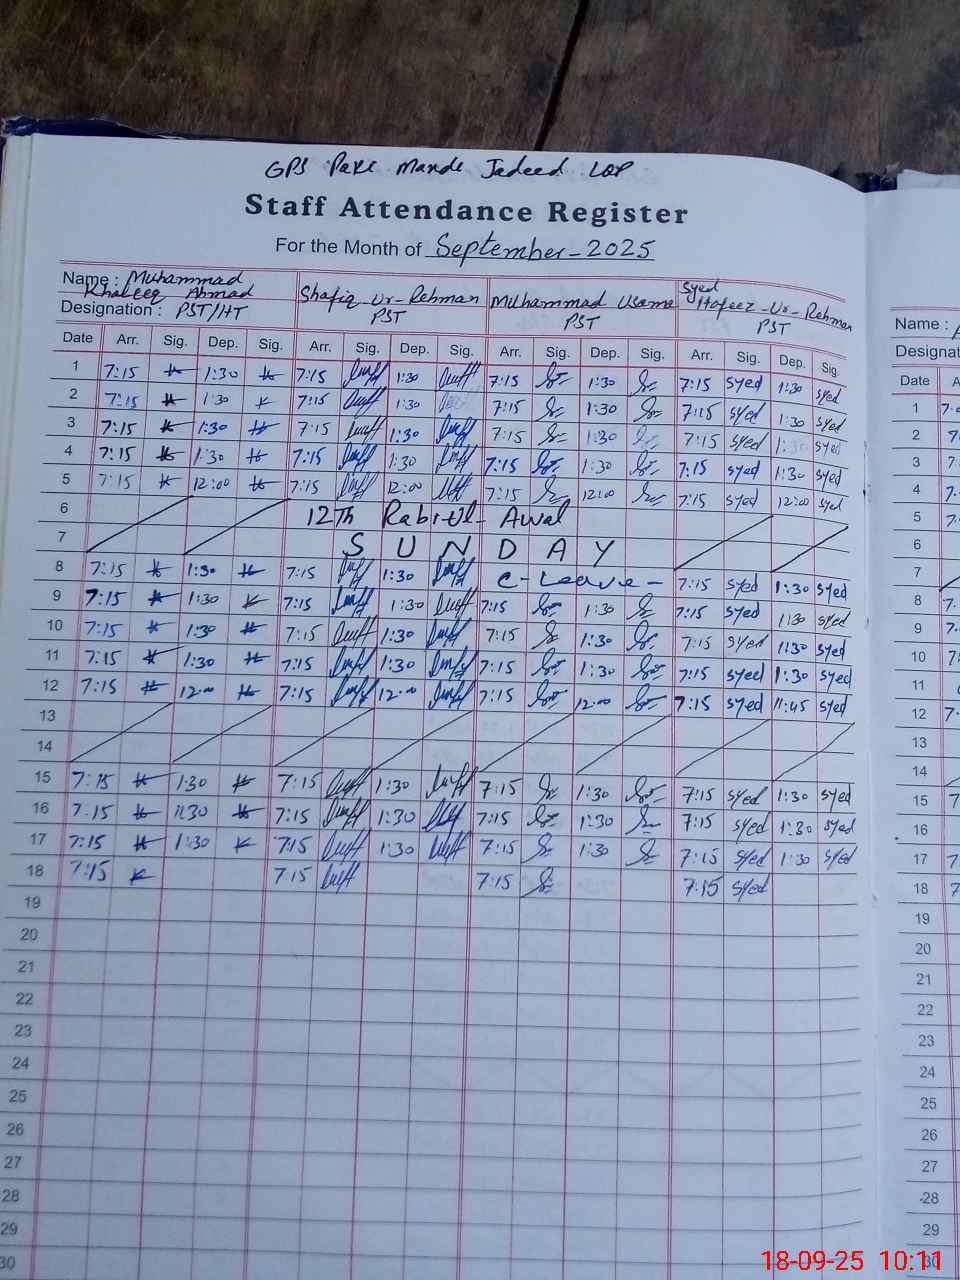 GPS Pake Mande Jadeed LOP
Staff Attendance Register
For the Month of September-2025
Name : Muhammad Khaleeq Ahmad Shafiq-Ur-Rehman Muhammad Usama Syed Hafeez-Ur-Rehman
Designation : PST/HT PST PST PST
Name :
Designat
Date Arr. Sig. Dep. Sig. Arr. Sig. Dep. Sig. Arr. Sig. Dep. Sig. Arr. Sig. Dep. Sig. Date A
1 7:15 1:30 7:15 1:30 7:15 1:30 7:15 syed 1:30 syed 1
2 7:15 1:30 7:15 1:30 7:15 1:30 7:15 syed 1:30 syed 2
3 7:15 1:30 7:15 1:30 7:15 1:30 7:15 syed syed 3
4 7:15 1:30 7:15 1:30 7:15 1:30 7:15 syed 1:30 syed 4
5 7:15 12:00 7:15 12:00 7:15 12:00 7:15 syed 12:00 syed 5
6 12Th Rabi-Ul-Awal 6
7 SUNDAY 7
8 7:15 1:30 7:15 1:30 C-Leave- 7:15 syed 1:30 syed 8
9 7:15 1:30 7:15 1:30 7:15 1:30 7:15 syed 1:30 syed 9
10 7:15 1:30 7:15 1:30 7:15 1:30 7:15 syed 1:30 syed 10
11 7:15 1:30 7:15 1:30 7:15 1:30 7:15 syed 1:30 syed 11
12 7:15 12:00 7:15 12:00 7:15 12:00 7:15 syed 11:45 syed 12
13 13
14 14
15 7:15 1:30 7:15 1:30 7:15 1:30 7:15 syed 1:30 syed 15
16 7:15 1:30 7:15 1:30 7:15 1:30 7:15 syed 1:30 syed 16
17 7:15 1:30 7:15 1:30 7:15 1:30 7:15 syed 1:30 syed 17
18 7:15 7:15 7:15 7:15 syed 18
19 19
20 20
21 21
22 22
23 23
24 24
25 25
26 26
27 27
28 28
29 29
30 30
18-09-25 10:11